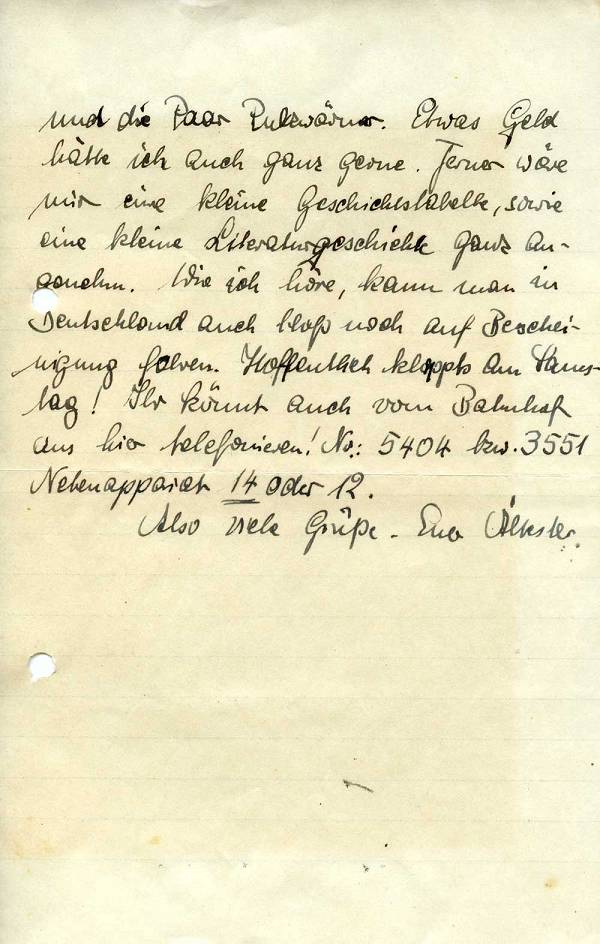 und die Paar Pulswärmer. Etwas Geld
hätte ich auch ganz gerne. Ferner wäre
mir eine kleine Geschichtstabelle, sowie
eine kleine Literaturgeschichte ganz an-
genehm. Wie ich höre, kann man in
Deutschland auch bloß noch auf Beschei-
nigung fahren. Hoffentlich kloppts am Sams-
tag! Ihr könnt auch vom Bahnhof
aus hier telefonieren! No.: 5404 bzw. 3551
Nebenapparat 14 oder 12.
Also viele Grüße - Euer Ältester.